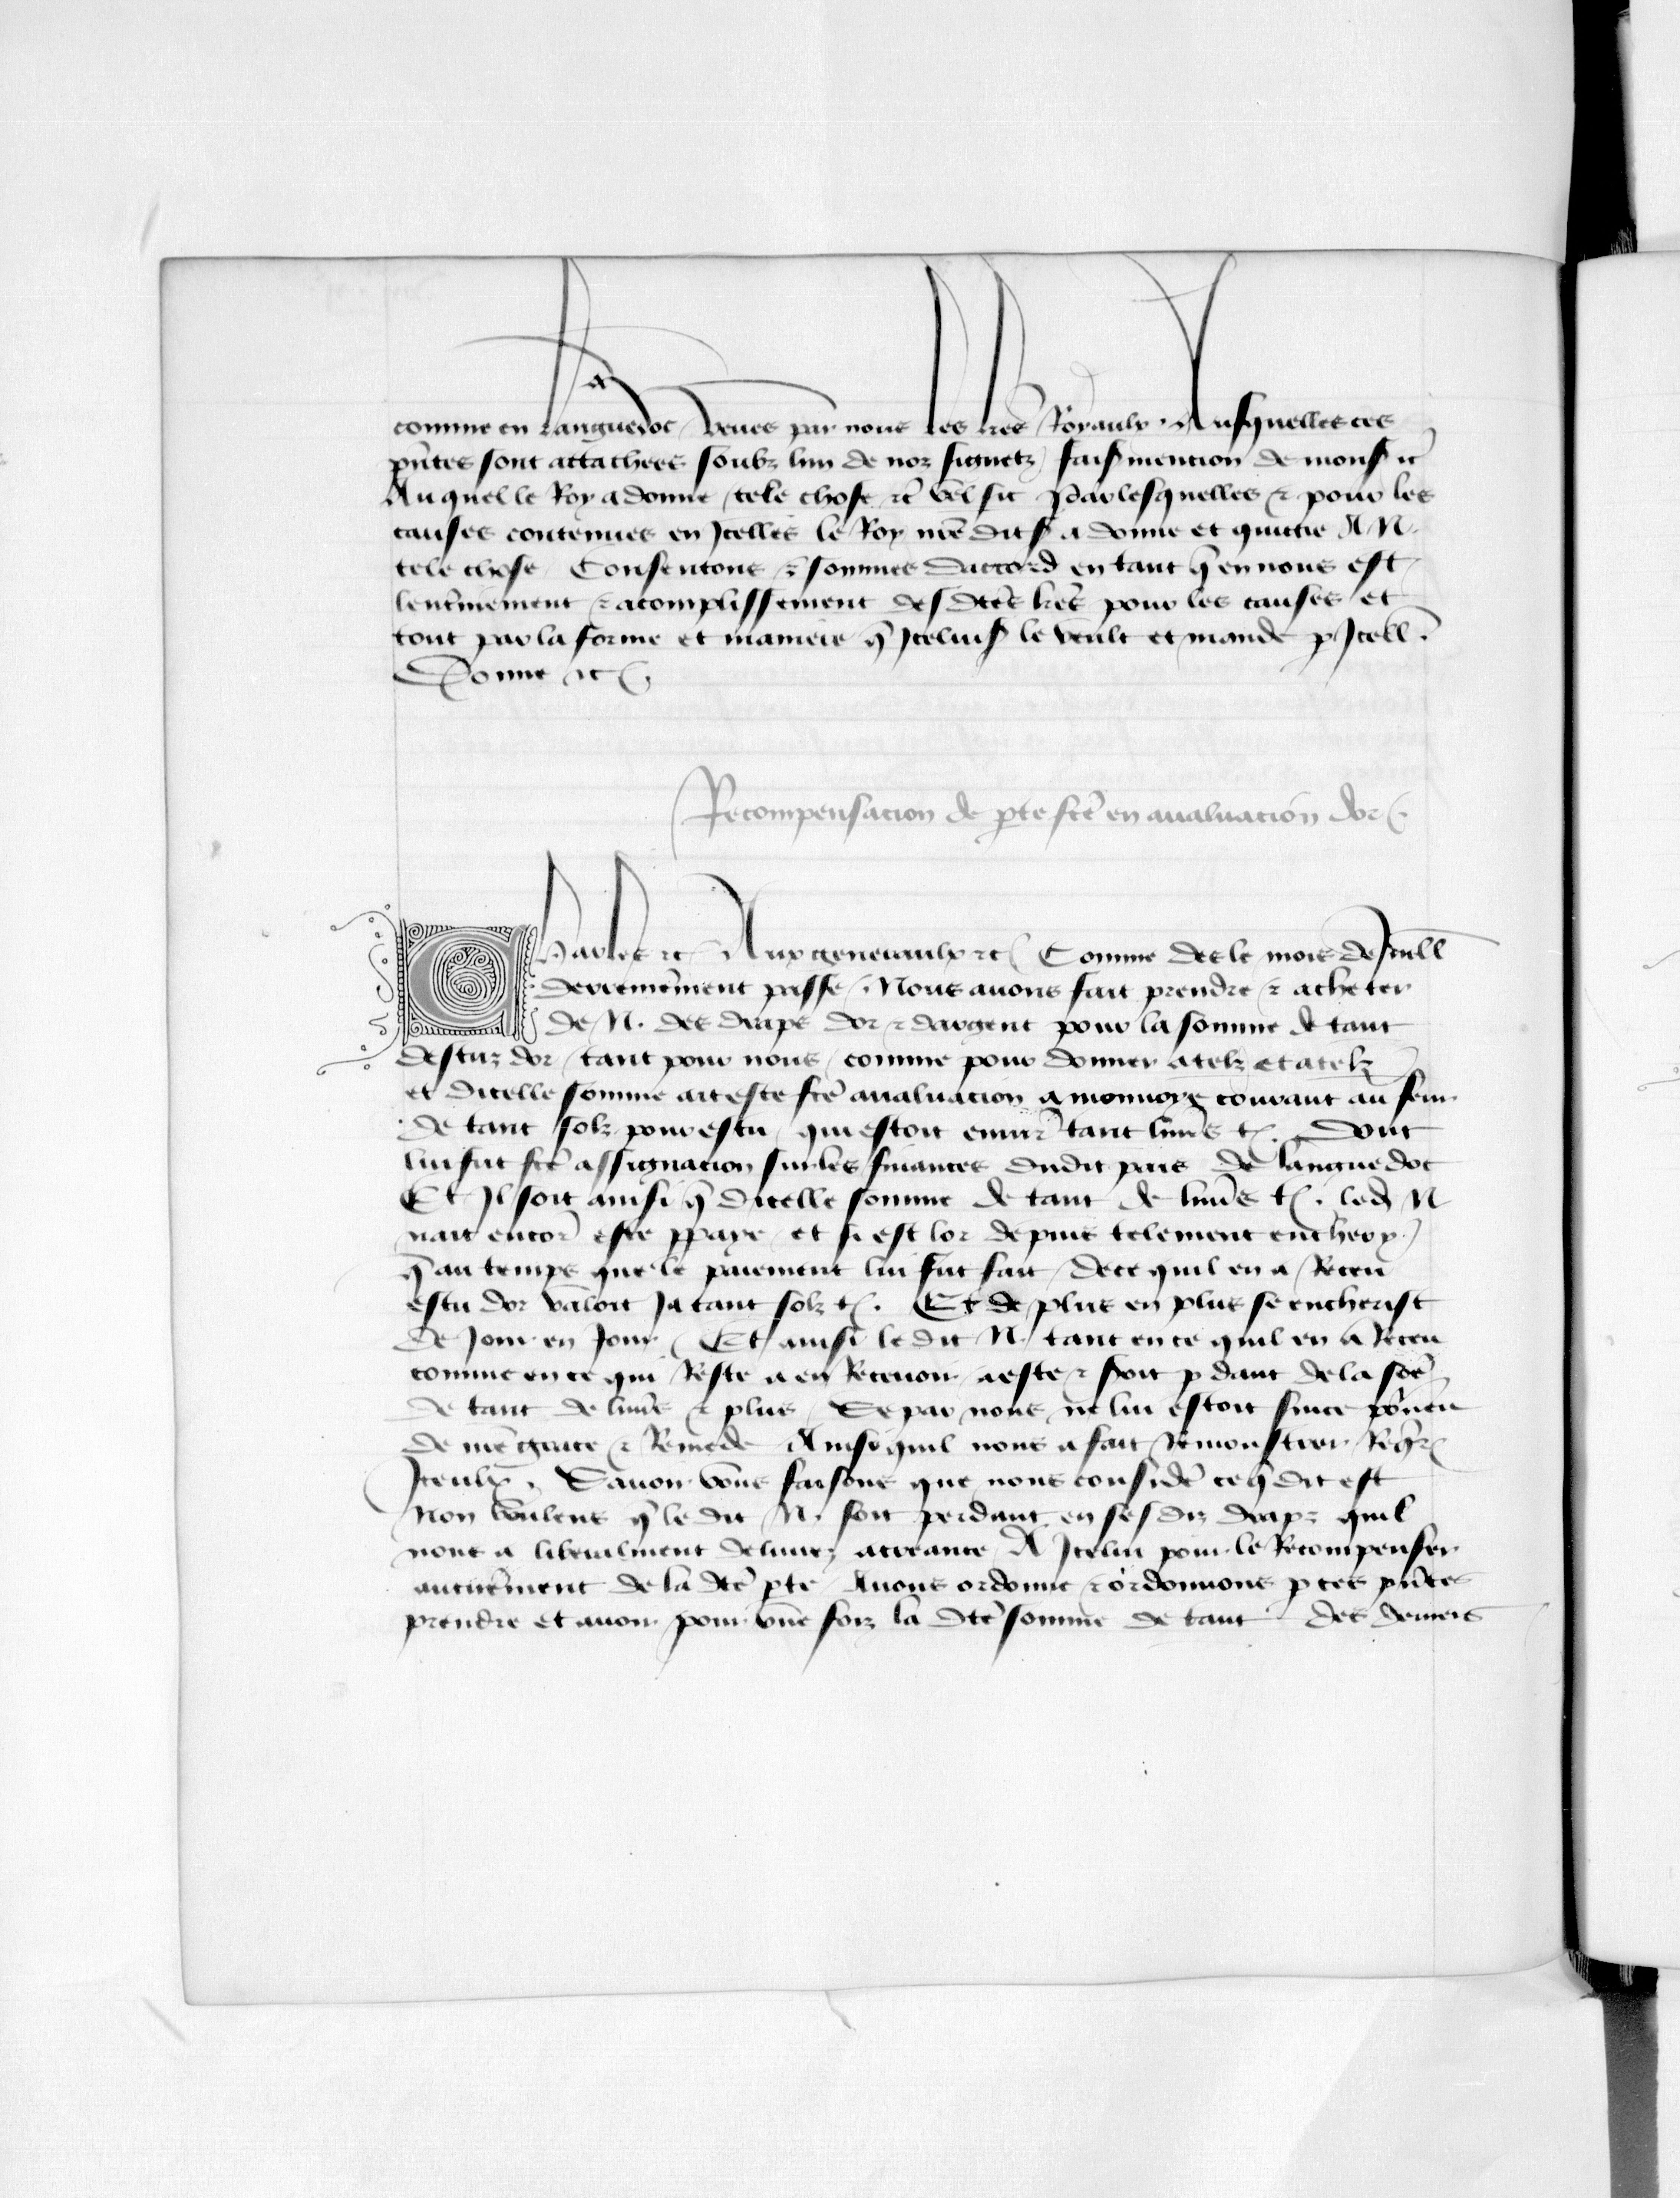 comme en languedoc, veues par nous les lrēs Royaulx. Ausquelles ces
pn̄tes sont attachees soubz lun de noz signetz, fais mencion de mons ⁊c̄
Auquel le Roy a donne, tele chose, ⁊c̄ vel sic Par lesquelles ⁊ pour les
causes contenues en Icelles le Roy nrē dits a donne et quicte A N.
tele chose, Consentons, ⁊ sommes daccord en tant q̄ en nous est,
lenterinement ⁊ acomplissement des dctēs lrēs pour les causes et
tout par la forme et maniere q̄ Icelui s le veult et mande p Icell.
Donne ⁊c.
Recompensacion de pte fctē en avaluacion dor.
Charles ⁊c Aux generaulx ⁊c Comme des le mois de Juill
derrenem̄ent passe, Nous auons fait prendre ⁊ acheter
de N. des draps dor ⁊ dargent pour la somme de tant
descuz dor, tant pour nous, comme pour donner a telz et a telz
et dicelle somme ait este fctē aualuacion a monnoye courant au feur
de tant solz pour escu, qui estoit enuir̄ tant liurēs t. Dont
lui fut fctē assignacion sur les finances dudit pais de languedoc
Et Il soit ainsi q̄ dicelle somme de tant de liurēs t. led N
nait encor̄ este ppaye, et si est lor depuis telement encheoy,
q̄ au temps que le paiement lui fut fait, de ce quil en a Receu
escu dor valoit ja tant solz t. Et de plus en plus se encherist
de Jour en Jour, Et ainsi le dit N. tant en ce quil en a Receu
comme en ce qui Reste a en Receuoir, a este ⁊ soit p dant de la sōē
de tant de liurēs ⁊ plus, Se par nous ne lui estoit sur ce pōūeu
de nrē grace ⁊ Remede Ainsi quil nous a fait Remonstrer, Req̄r
Iceulx. Sauoir vous faisons que nous considē ce q̄ dit est
Non voulens q̄ le dit N. soit perdant en ses diz draps quil
nous a liberalment deliurez a creance, A Icelui pour le Recompenser
aucunem̄ent de la dctē pte, Auons ordonne ⁊ ordonnons p ces pn̄tes
prendre et auoir pour vne foiz la dctē somme de tant des deniers